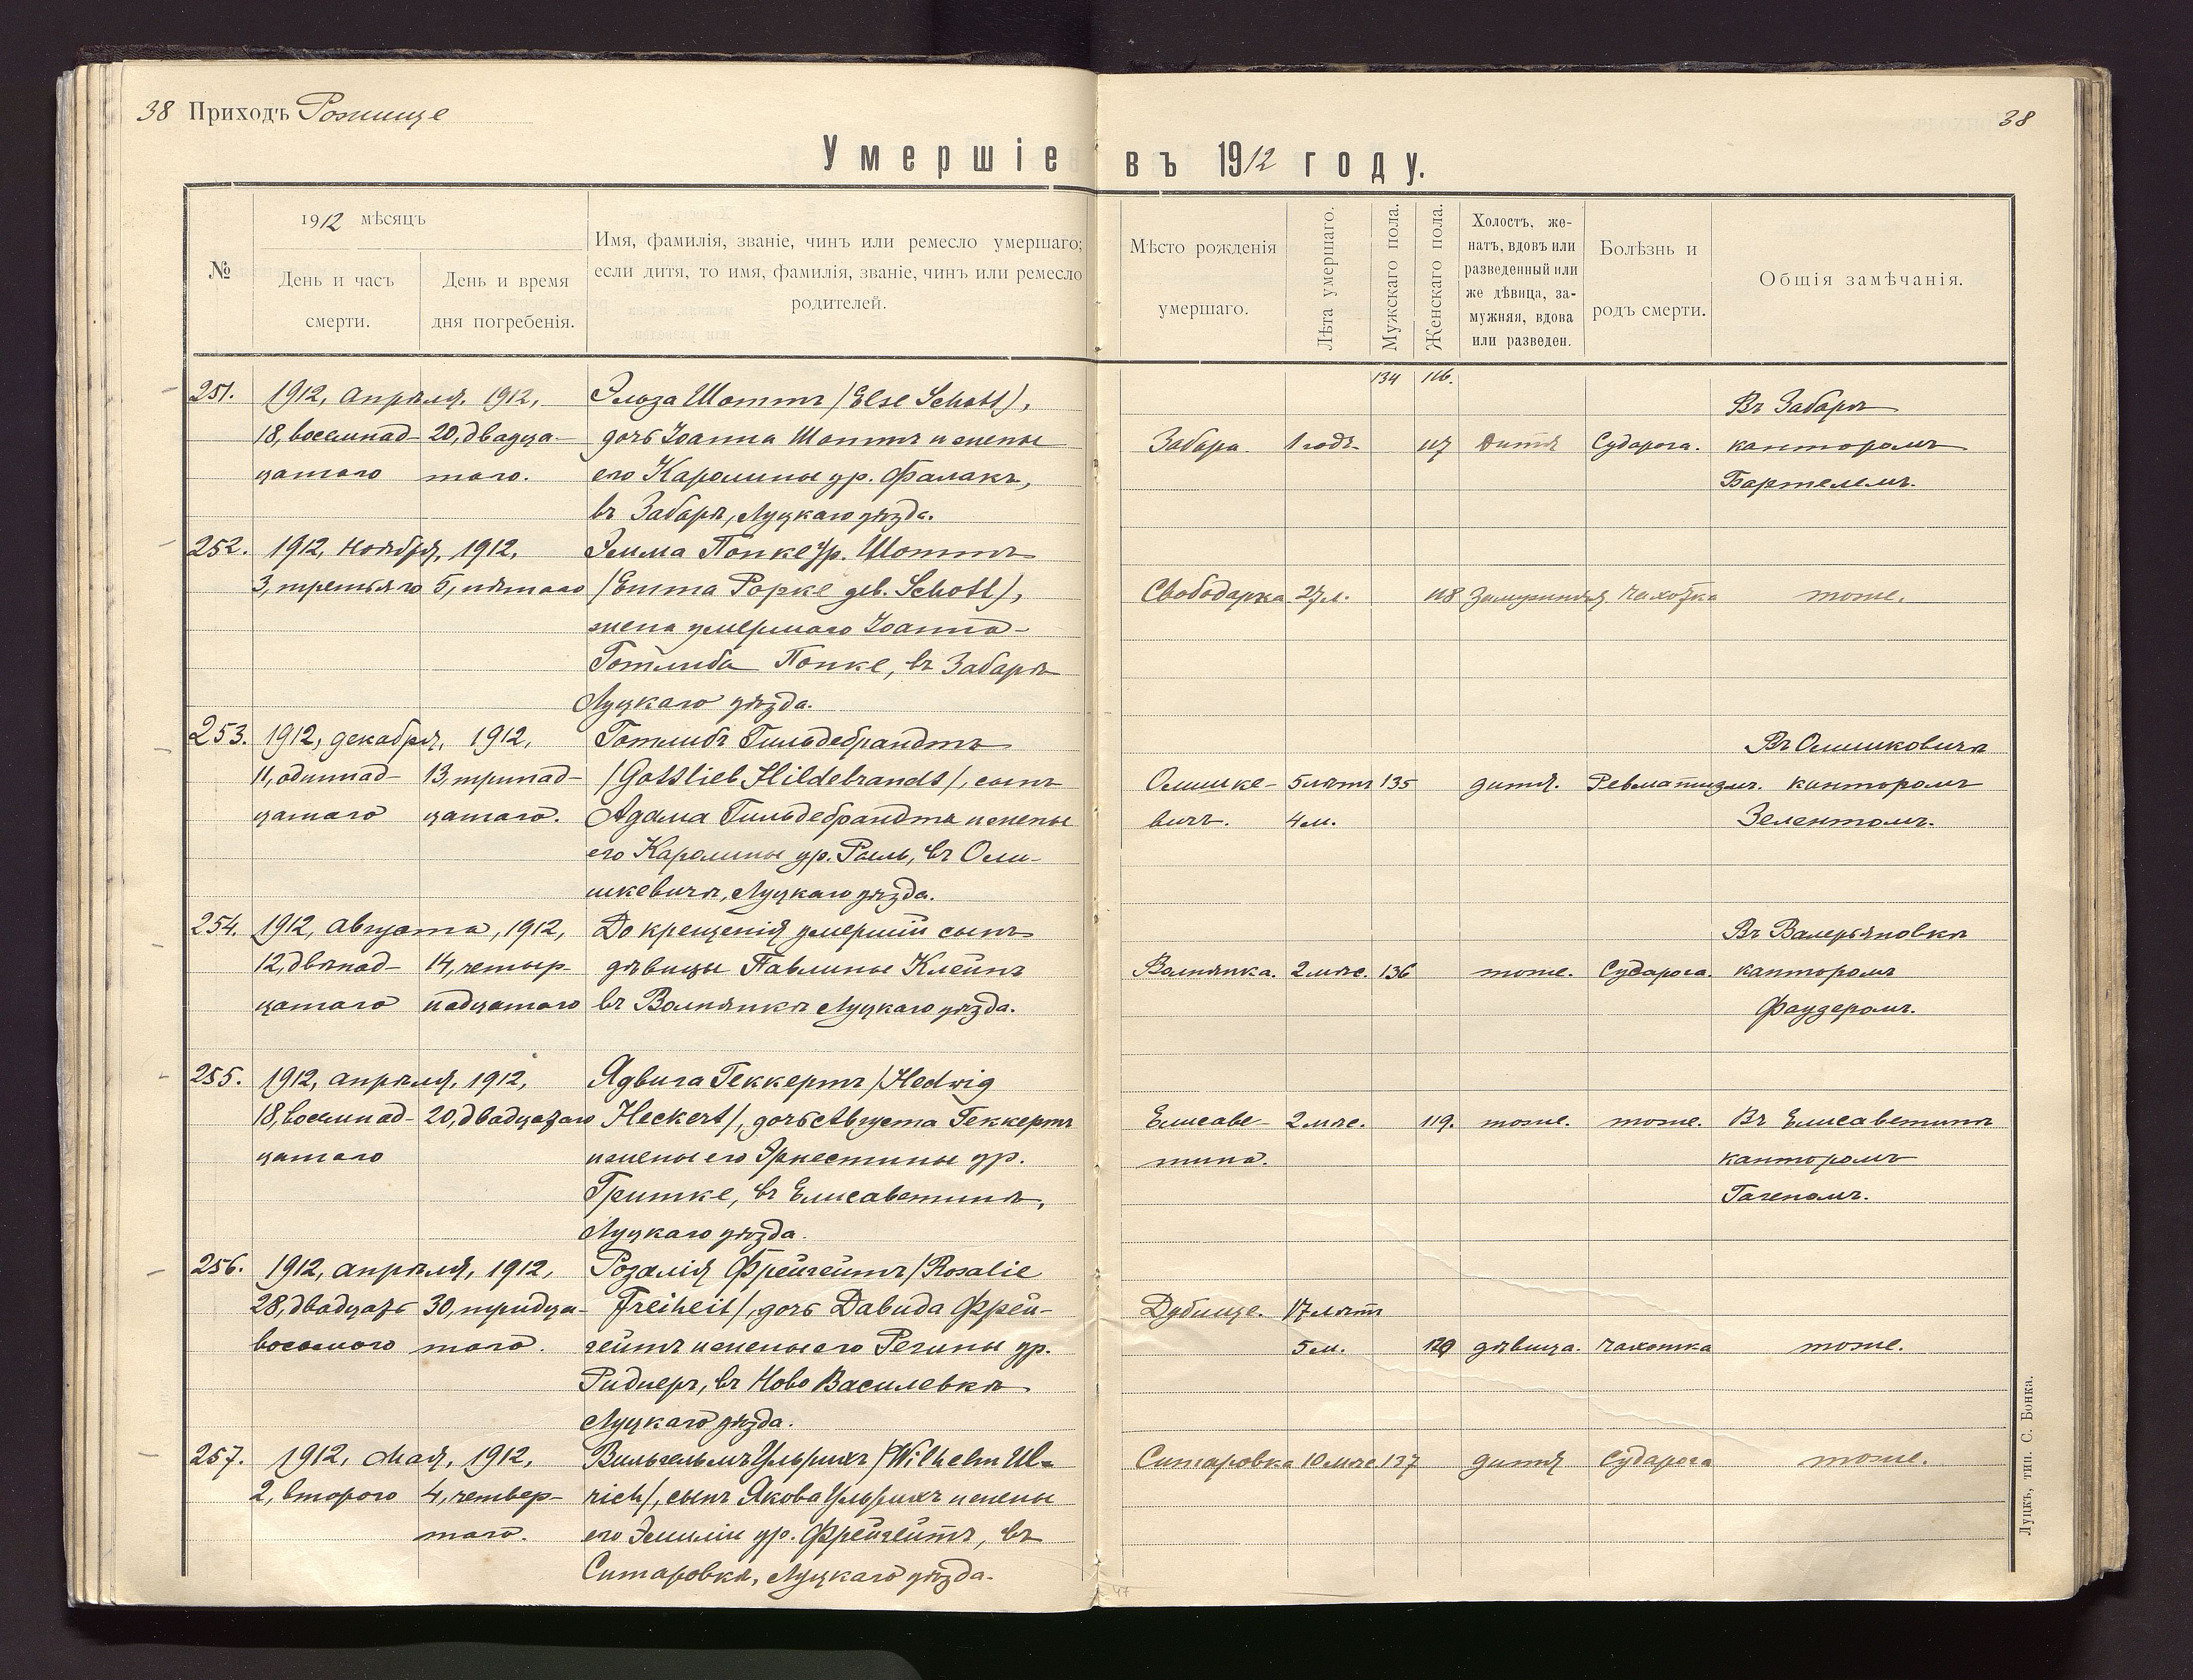 38 Приходъ Рожище
38
Умершіе въ 1912 году.
№
1912 мѣсяцъ
День и часъ
смерти.
День и время
дня погребенія.
Имя, фамилія, званіе, чинъ или ремесло умершаго;
если дитя, то имя, фамилія, званіе, чинъ или ремесло
родителей.
Мѣсто рожденія
умершаго.
Лѣта умершаго.
Мужскаго пола.
Женскаго пола.
Холостъ, же-
натъ, вдовъ или
разведенный или
же дѣвица, за-
мужняя, вдова
или разведен.
Болѣзнь и
родъ смерти.
Общія замѣчанія.
134 116.
251. 1912, апрѣля, 1912, Эльза Шоттъ /Else Schott/, Въ Забарѣ
18, восемнад- 20, двадца- дочь Іоанна Шоттъ и жены Забара. 1 годъ. 117 Дитя Судорога. канторомъ
цатаго таго. его Каролины ур. Фалакъ, Бартелемъ.
въ Забарѣ, Луцкаго уѣзда.
252. 1912, ноября, 1912, Эмма Попке ур. Шоттъ
3, третьяго 5, пятаго /Emma Popke geb. Schott/, Свободарка 27 л. 118 Замужняя. Чахотка тоже.
жена умершаго Іоанна-
Готлиба Попке, въ Забарѣ
Луцкаго уѣзда.
253. 1912, декабря, 1912, Готлибъ Гильдебрандтъ Въ Олишковичѣ
11, одиннад- 13, тринад- /Gottlieb Hildebrandt/, сынъ Олишке- 5 лѣтъ 135 дитя. Ревматизмъ. канторомъ
цатаго цатаго. Адама Гильдебрандта и жены вичъ. 4 м. Зелентомъ.
его Каролины ур. Рыль, въ Оли-
шкевичѣ, Луцкаго уѣзда.
254. 1912, августа, 1912, До крещенія умершій сынъ Въ Валерьяновкѣ
12, двѣнад- 14, четыр- дѣвицы Павлины Клейнъ Волнянка. 2 мѣс. 136 тоже. Судорога. канторомъ
цатаго надцатаго въ Волнянкѣ Луцкаго уѣзда. Фаудеромъ.
255. 1912, апрѣля, 1912, Ядвига Геккертъ /Hedwig
18, восемнад- 20, двадцатаго Heckert/, дочь Августа Геккертъ Елисаве- 2 мѣс. 119. тоже. тоже. Въ Елисаветинѣ
цатаго и жены его Эрнестины ур. тина. канторомъ
Гритке, въ Елисаветинѣ, Гагеномъ.
Луцкаго уѣзда.
256. 1912, апрѣля, 1912, Розалія Фрейгейтъ /Rosalie
28, двадцать 30, тридца- Freiheit/, дочь Давида Фрей- Дубище. 17 лѣтъ
восьмого таго. гейтъ и жены его Регины ур. 5 м. 120 дѣвица. Чахотка тоже.
Риднеръ, въ Ново Василевкѣ
Луцкаго уѣзда.
257. 1912, Мая, 1912, Вильгельмъ Ульрихъ /Wilhelm Ul- Ситаровка 10 мѣс 137 дитя Судорога тоже.
2, второго 4, четвер- rich/, сынъ Якова Ульрихъ и жены
таго. его Эмиліи ур. Фрейгейтъ, въ
Ситаровкѣ, Луцкаго уѣзда.
Луцкъ, тип. С. Бонка.